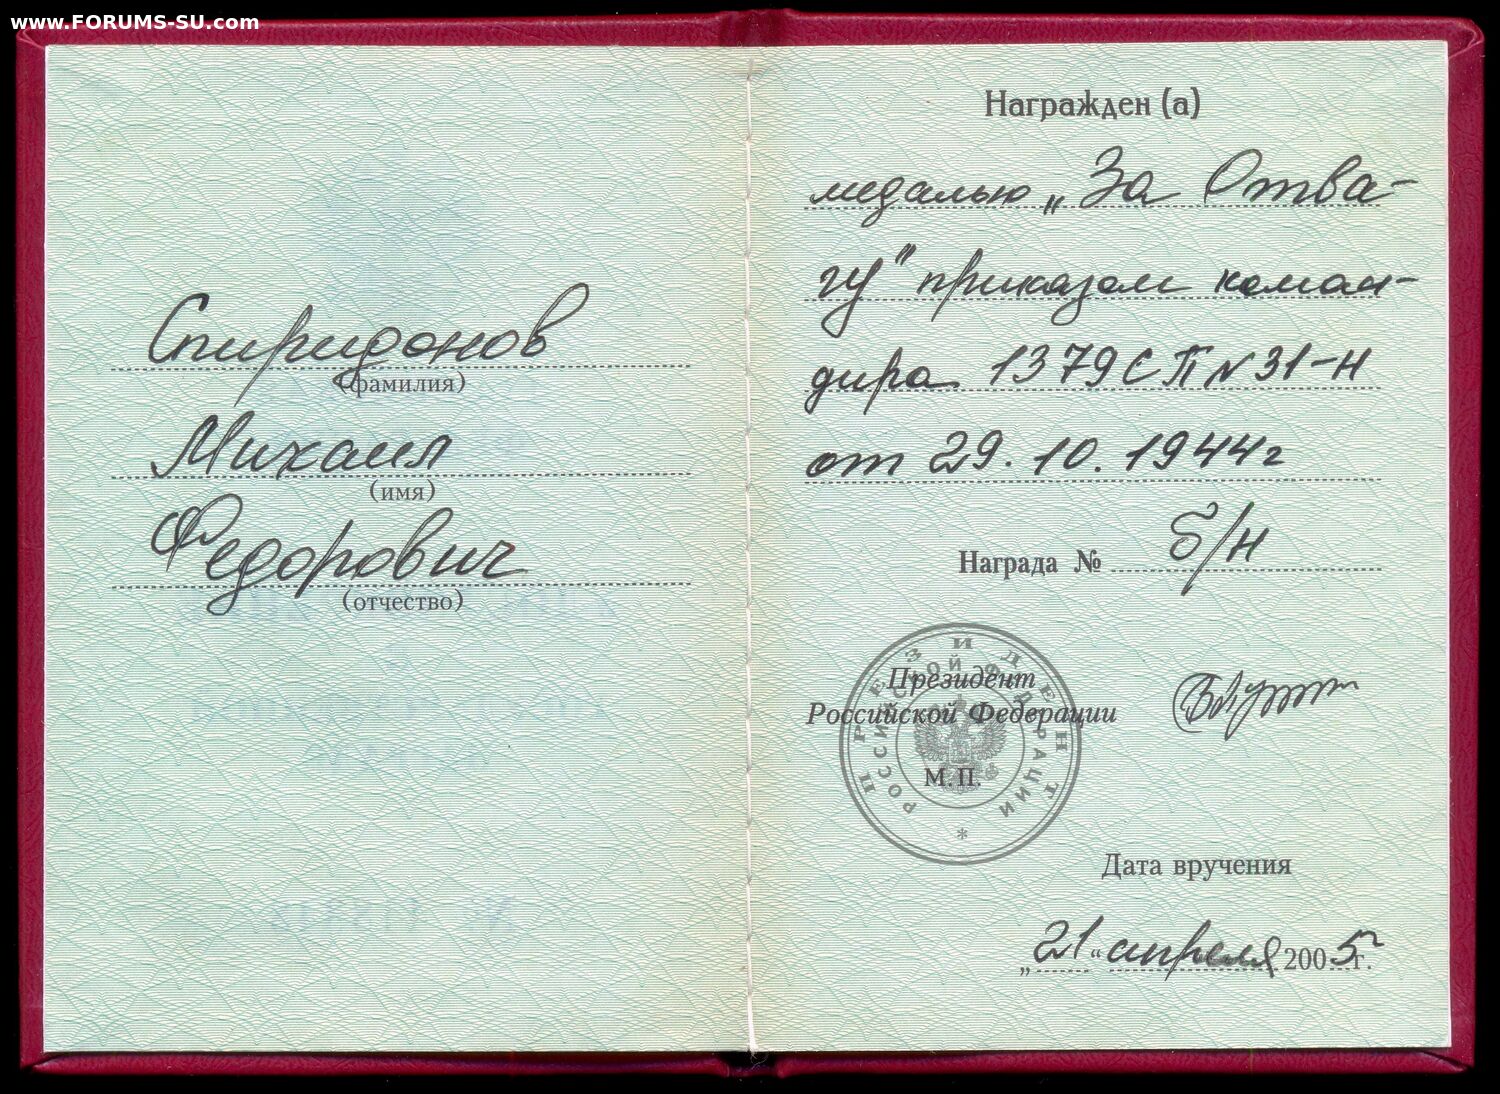 www.FORUMS-SU.com
Спиридонов
(фамилия)
Михаил
(имя)
Федорович
(отчество)
Награжден (а)
медалью „За Отва-
гу" приказом коман-
дира 1379 СП N 31-н
от 29.10.1944г
Награда № б/н
ПРЕЗИДЕНТ
РОССИЙСКОЙ ФЕДЕРАЦИИ
*
Президент
Российской Федерации
М.П.
Дата вручения
„21“ апреля 2005г.